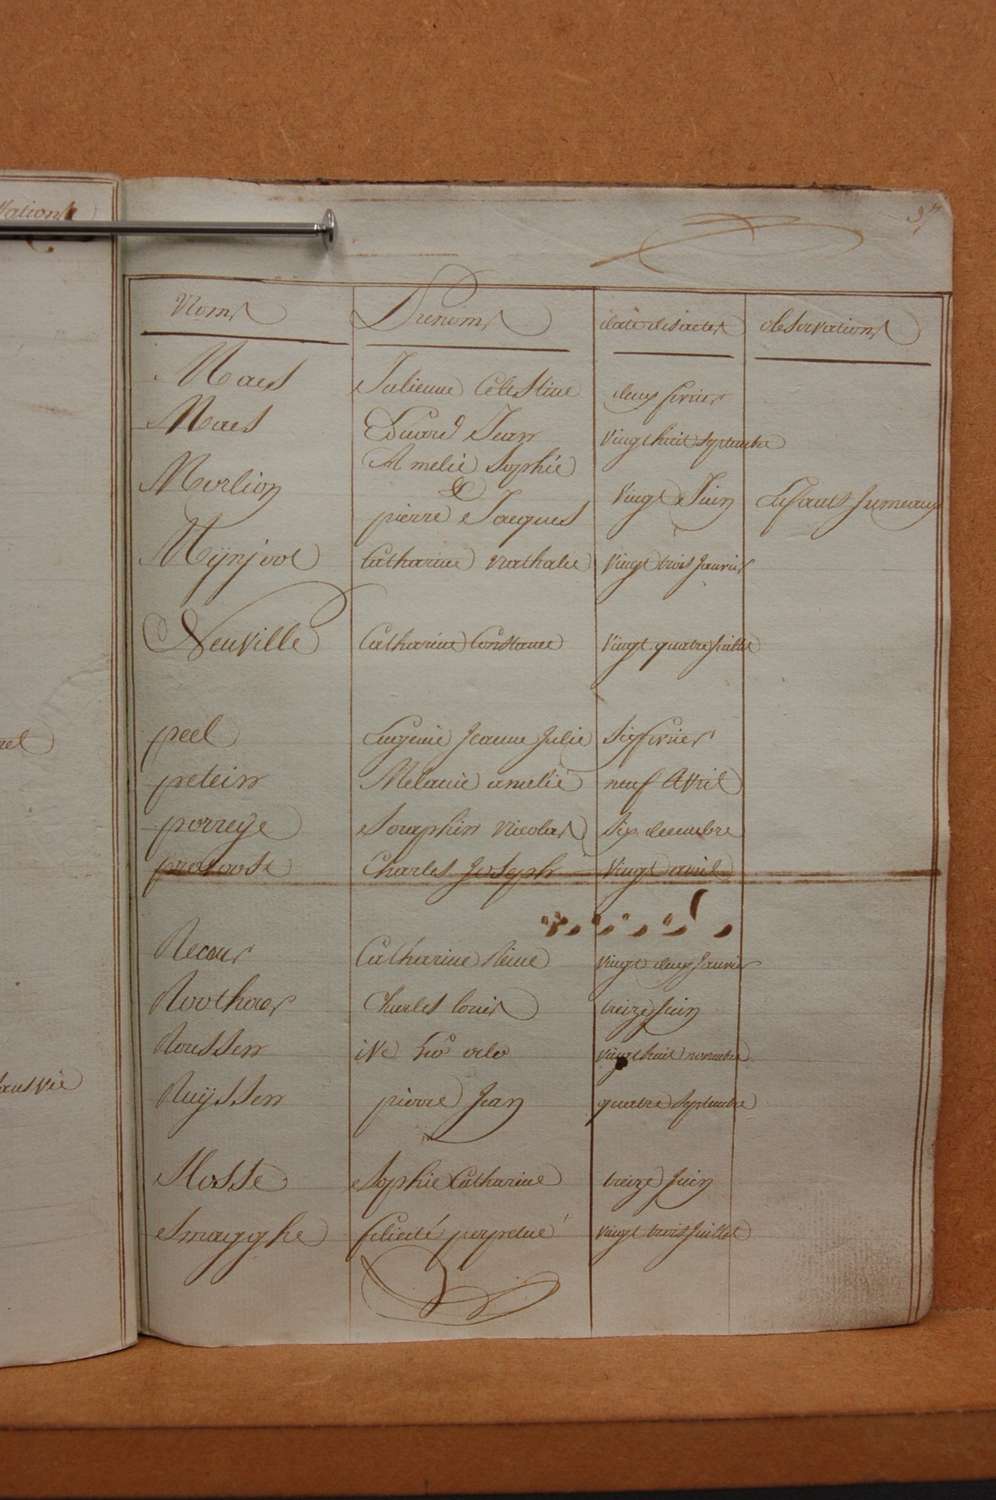 Noms Prenoms date des actes observations
Maes Julienne Celestine deux fevrier
Maes Eduard Jean vingt huit septembre
Amelie Sophie
Morlion & vingt Juin Enfants Jumeaux
pierre Jacques
Mijnjool Catharine Nathalie vingt trois Janvier
Neuville Catharine Constance vingt quatre Juillet
peel Eugenie Jeanne Julie Six fevrier
petein Melanie amelie neuf Avril
porreije Seraphin Nicolas Six decembre
provoost Charles Joseph vingt avril
Recour Catharine Reine vingt deux Janvier
Roothaer Charles louis treize Juin
Roussen ive vingt huit novembre
Ruijssen pierre Jean quatre septembre
Slosse Sophie Catharine treize Juin
Smagghe felicité perpetué vingt trois Juillet